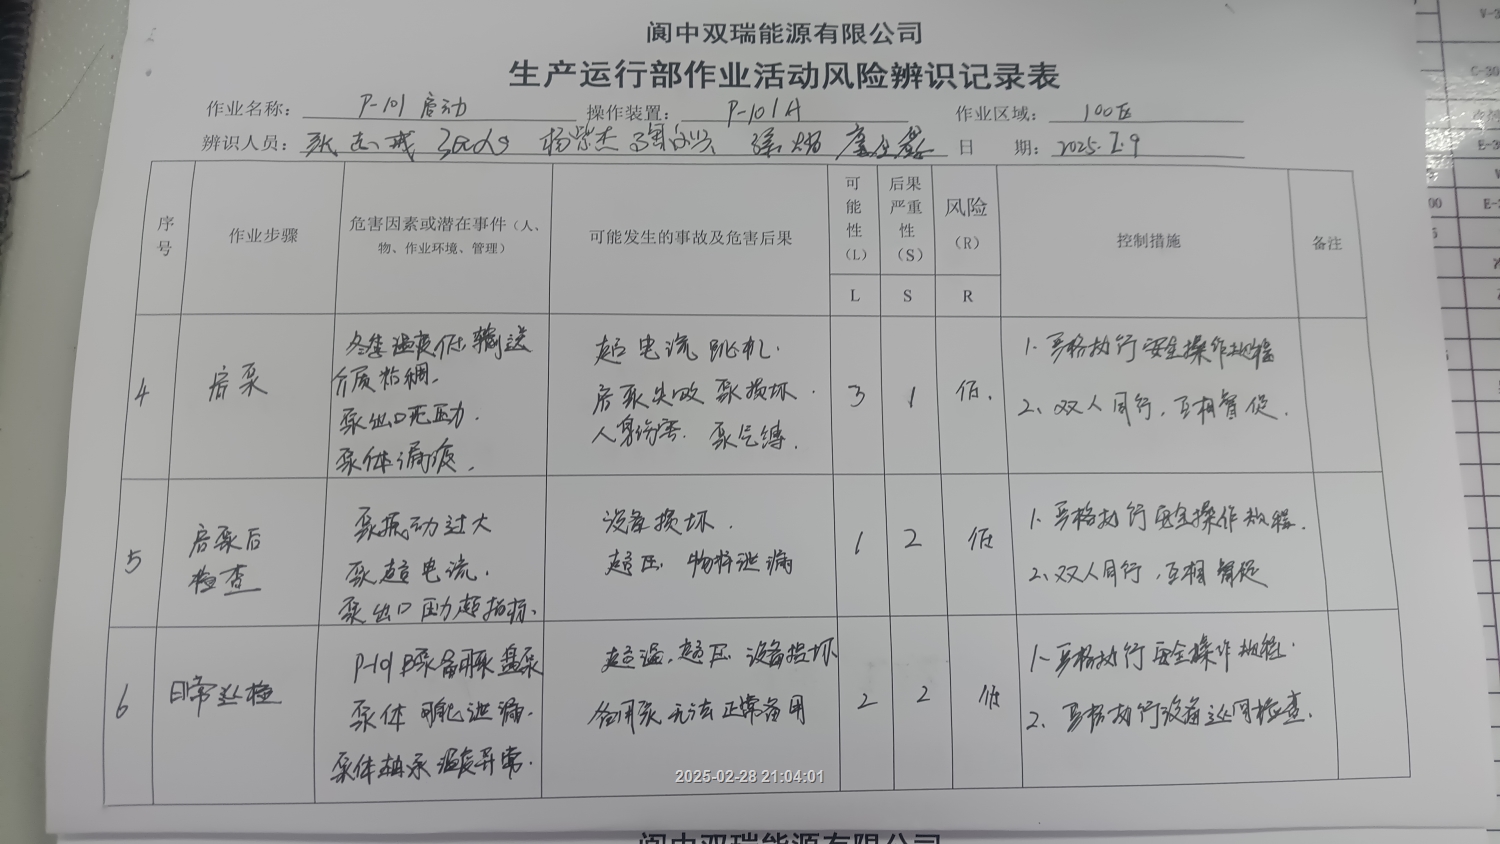 阆中双瑞能源有限公司
生产运行部作业活动风险辨识记录表
作业名称： P-101 启动 操作装置： P-101A 作业区域： 100区
辨识人员： 张 杨紫杰 日 期： 2025.2.9
序号 作业步骤 危害因素或潜在事件（人、物、作业环境、管理） 可能发生的事故及危害后果 可能性（L） 后果严重性（S） 风险（R） 控制措施 备注
L S R
4 启泵
冬季温度低输送
介质粘稠.
泵出口无压力.
泵体漏液.
超电流跳机.
启泵失败 泵损坏.
人身伤害. 泵气缚.
3 1 低.
1. 严格执行安全操作规程
2、双人同行，互相督促.
5 启泵后
检查
泵振动过大
泵超电流.
泵出口压力超指标.
设备损坏.
超压 物料泄漏
1 2 低
1. 严格执行安全操作规程.
2、双人同行，互相督促
6 日常巡检
P-101B泵备用泵盘泵
泵体 泄漏.
泵体轴承温度异常.
超温，超压 设备损坏
备用泵无法正常备用
2 2 低
1- 严格执行安全操作规程.
2、严格执行设备巡回检查.
2025-02-28 21:04:01
阆中双瑞能源有限公司